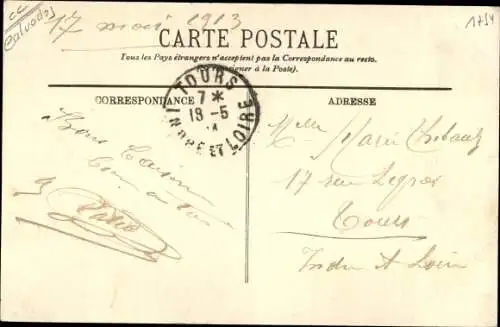 CC
Calvados
17 mai 1913
1754
CARTE POSTALE
Tous les Pays étrangers n'acceptent pas la Correspondance au recto.
(Se renseigner à la Poste).
CORRESPONDANCE
ADRESSE
TOURS
7 *
18-5
INDRE ET LOIRE
Bons
Mlle Marie Thibault
17 rue Legras
Tours
Indre et Loire